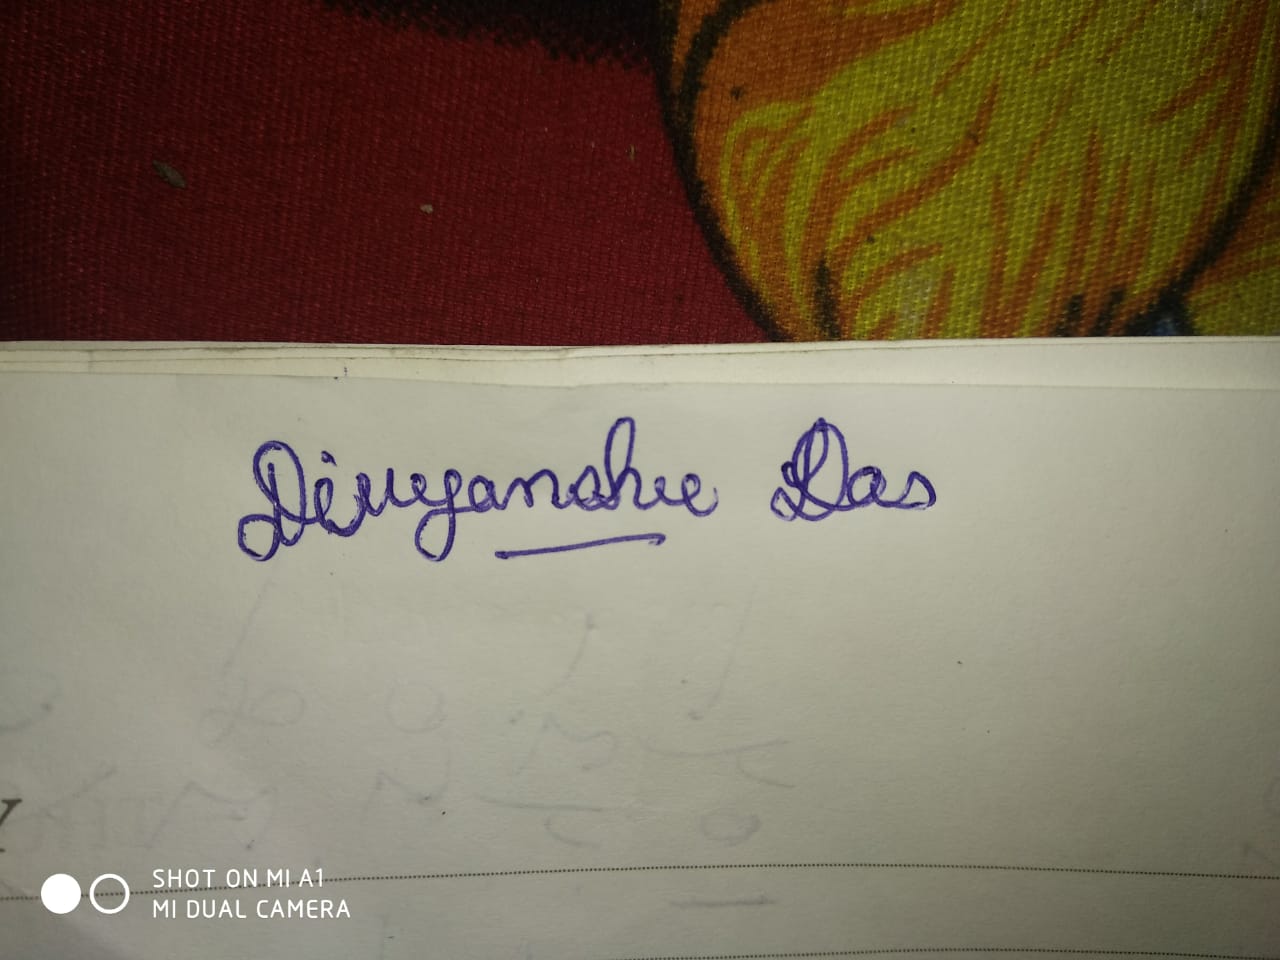 Divyanshu Das
SHOT ON MI A1
MI DUAL CAMERA